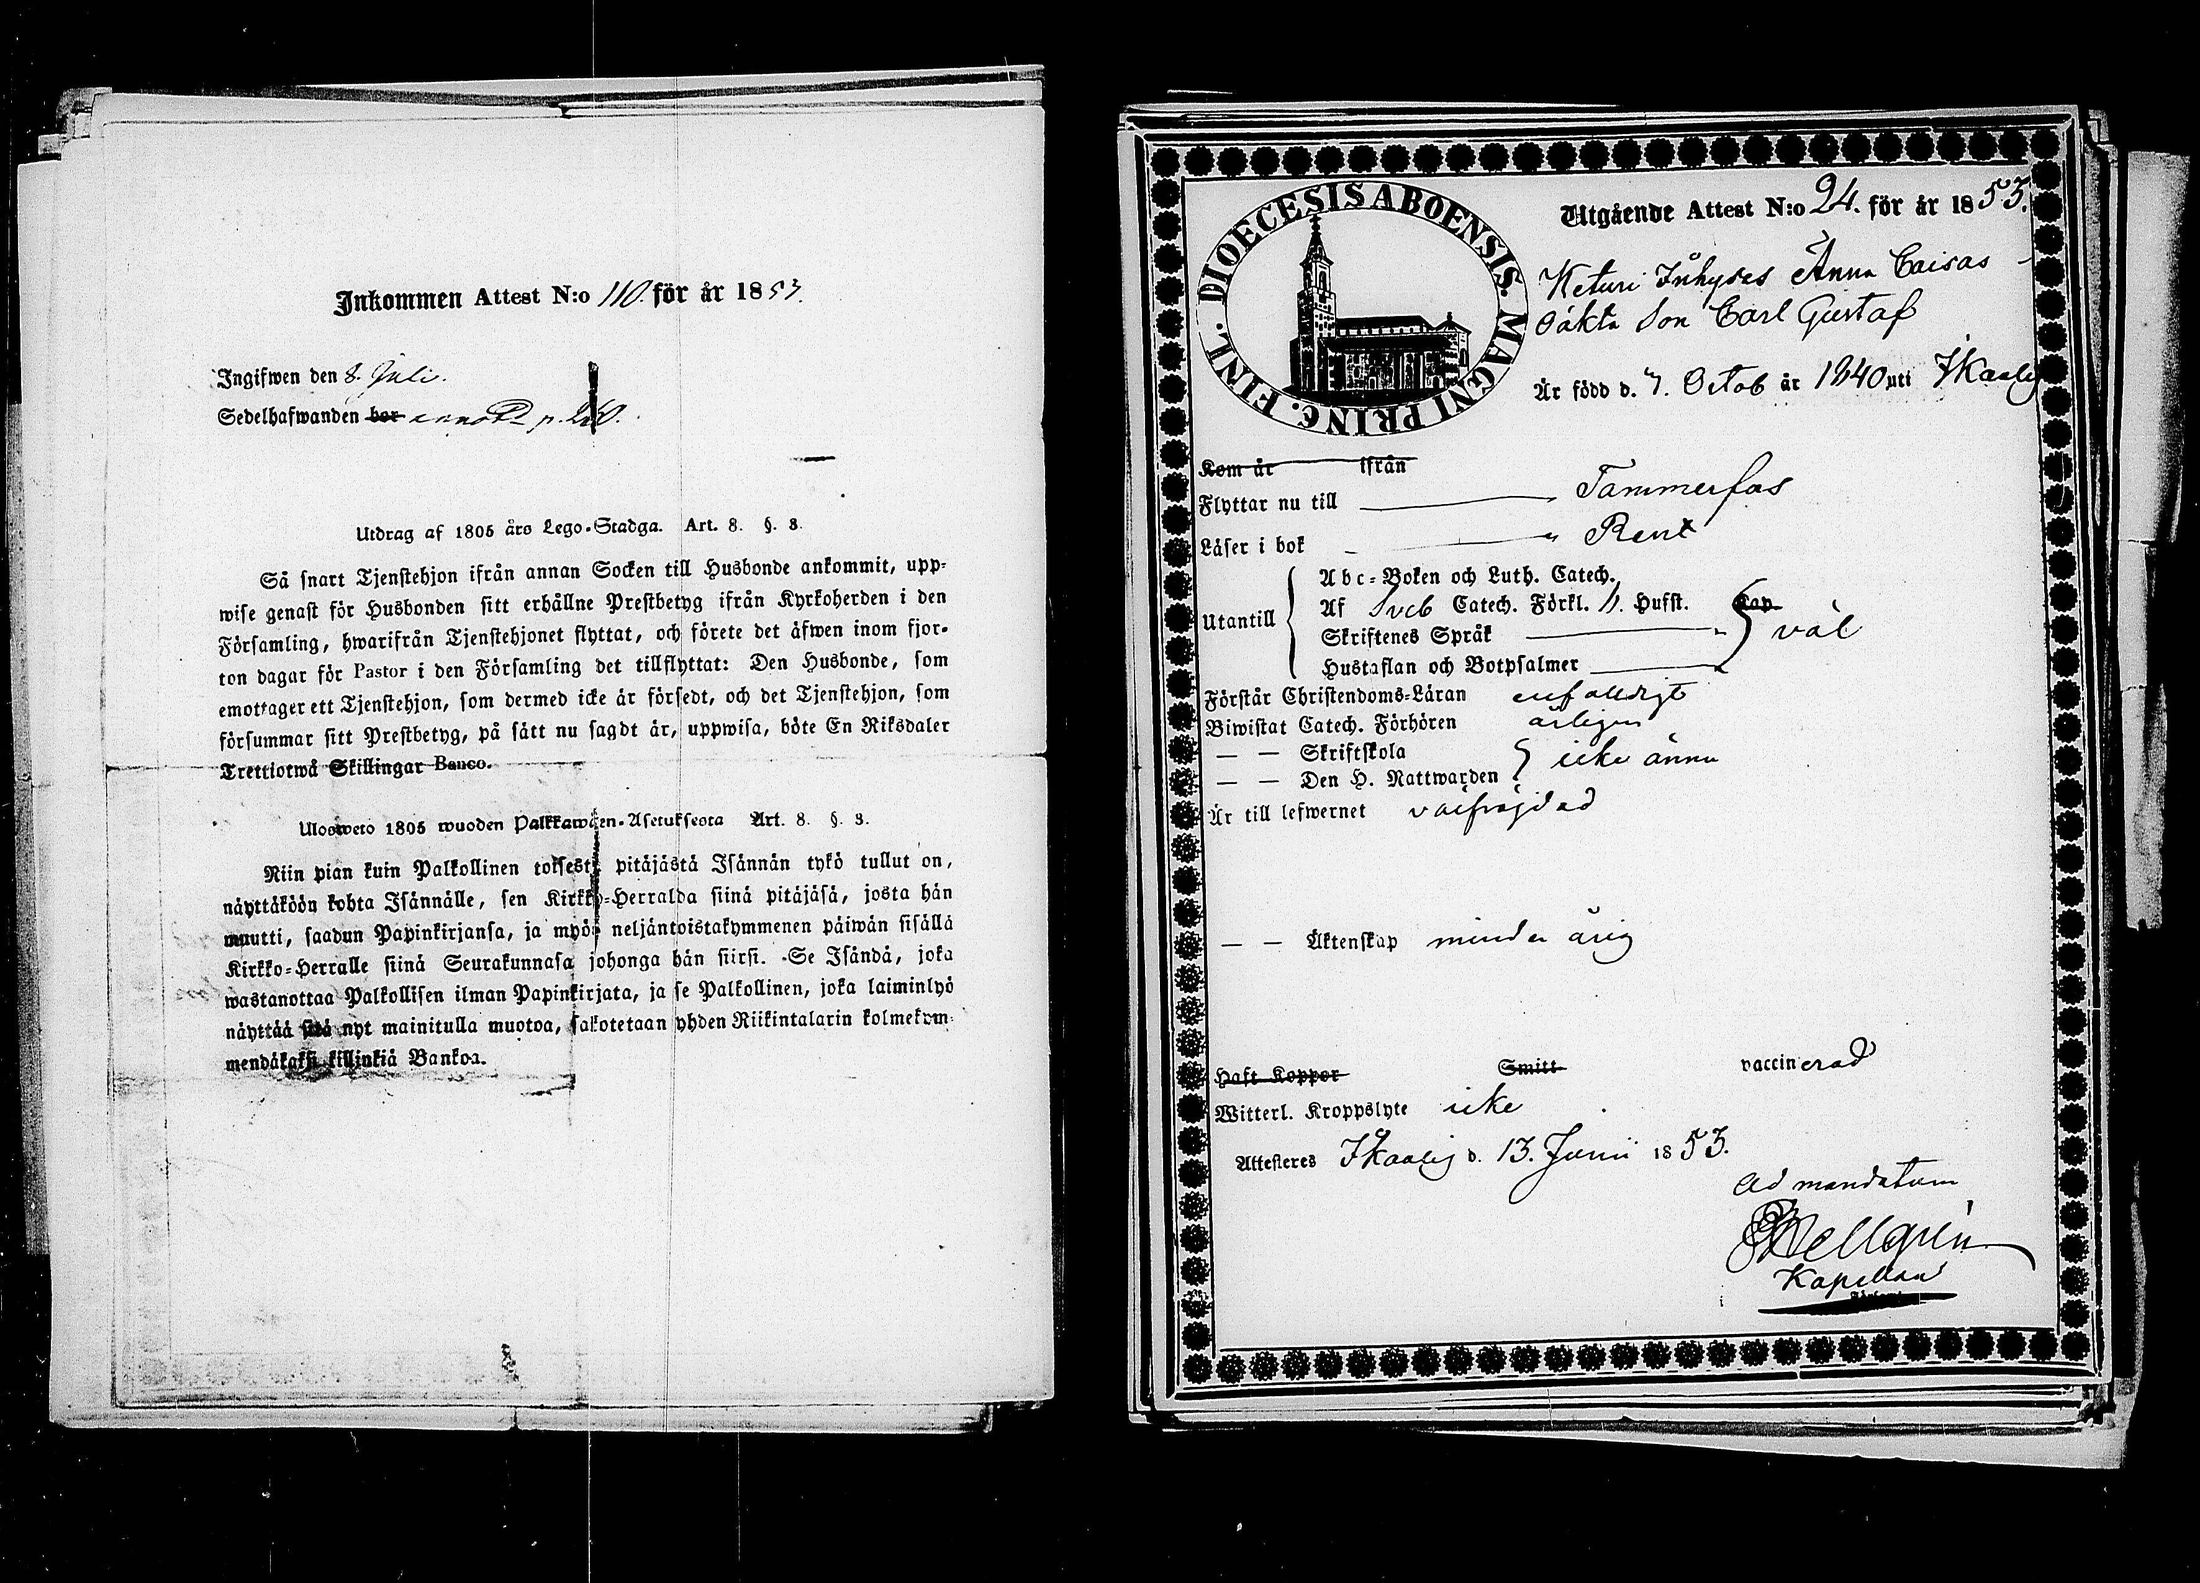 Inkommen Attest N:o 110. för år 1853.
Ingifwen den 8. Juli.
Sedelhafwanden bor annot. p. 260.
Utdrag af 1805 års Lego-Stadga. Art. 8. §. 3.
Så snart Tjenstehjon ifrån annan Socken till Husbonde ankommit, upp-
wise genast för Husbonden sitt erhållne Prestbetyg ifrån Kyrkoherden i den
Församling, hwarifrån Tjenstehjonet flyttat, och förete det äfwen inom fjor-
ton dagar för Pastor i den Församling det tillflyttat: Den Husbonde, som
emottager ett Tjenstehjon, som dermed icke är försedt, och det Tjenstehjon, som
försummar sitt Prestbetyg, på sätt nu sagdt är, uppwisa, böte En Riksdaler
Trettiotwå Skillingar Banco.
Ulosweto 1805 wuoden Palkkawäen-Asetuksesta Art. 8. §. 3.
Niin pian kuin Palkollinen toisesta pitäjästä Isännän tykö tullut on,
näyttäköön kohta Isännälle, sen Kirkko-Herralda siinä pitäjäsä, josta hän
muutti, saadun Papinkirjansa, ja myös neljäntoistakymmenen päiwän sisällä
Kirkko-Herralle siinä Seurakunnasa johonga hän siirsi. Se Isändä, joka
wastanottaa Palkollisen ilman Papinkirjata, ja se Palkollinen, joka laiminlyö
näyttää sitä nyt mainitulla muotoa, sakotetaan yhden Riikintalarin kolmekym-
mendäkaksi killinkiä Bankoa.
DIOECESIS ABOENSIS. MAGNI PRINC. FINL.
Utgående Attest N:o 24. för år 1853.
Keturi Inhyses Anna Caisas
oäkta Son Carl Gustaf
Är född d. 7. Octob år 1840 uti Ikaalis
Kom år ifrån
Flyttar nu till Tammerfos
Läser i bok Rent
Utantill
Abc-Boken och Luth. Catech.
Af Sveb Catech. Förkl. 11. Hufst. Kap.
Skriftenes Språk väl
Hustaflan och Botpsalmer
Förstår Christendoms-Läran enfaldigt
Biwistat Catech. Förhören årligen
— — Skriftskola
— — Den H. Nattwarden icke ännu
Är till lefwernet välfrejdad
— — Äktenskap minderårig
Haft Koppor Smitt vaccinerad
Witterl. Kroppslyte icke
Attesteres Ikaalis d. 13. Junii 1853.
Ad mandatum
Hellgrén
Kapellan